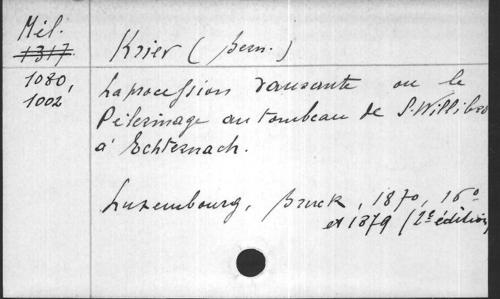 Mél.
1317
1080,
1002
Krier (Bern.)
La procession dansante ou le
Pélerinage au tombeau de S. Willibro
à Echternach.
Luxembourg, Bruck, 1870, 16°
et 1879 (2e édition)